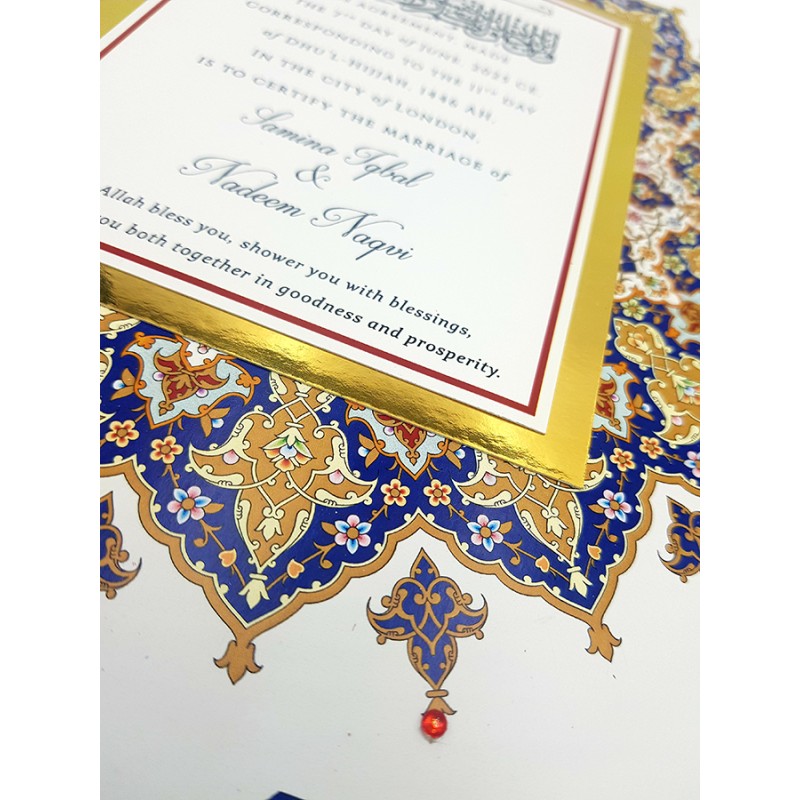 AGREEMENT MADE
THE 7TH DAY of JUNE, 2025 CE,
CORRESPONDING TO THE 11TH DAY
of DHU'L-HIJJAH, 1446 AH,
IN THE CITY of LONDON,
IS TO CERTIFY THE MARRIAGE of
Samina Iqbal
&
Nadeem Naqvi
Allah bless you, shower you with blessings,
you both together in goodness and prosperity.